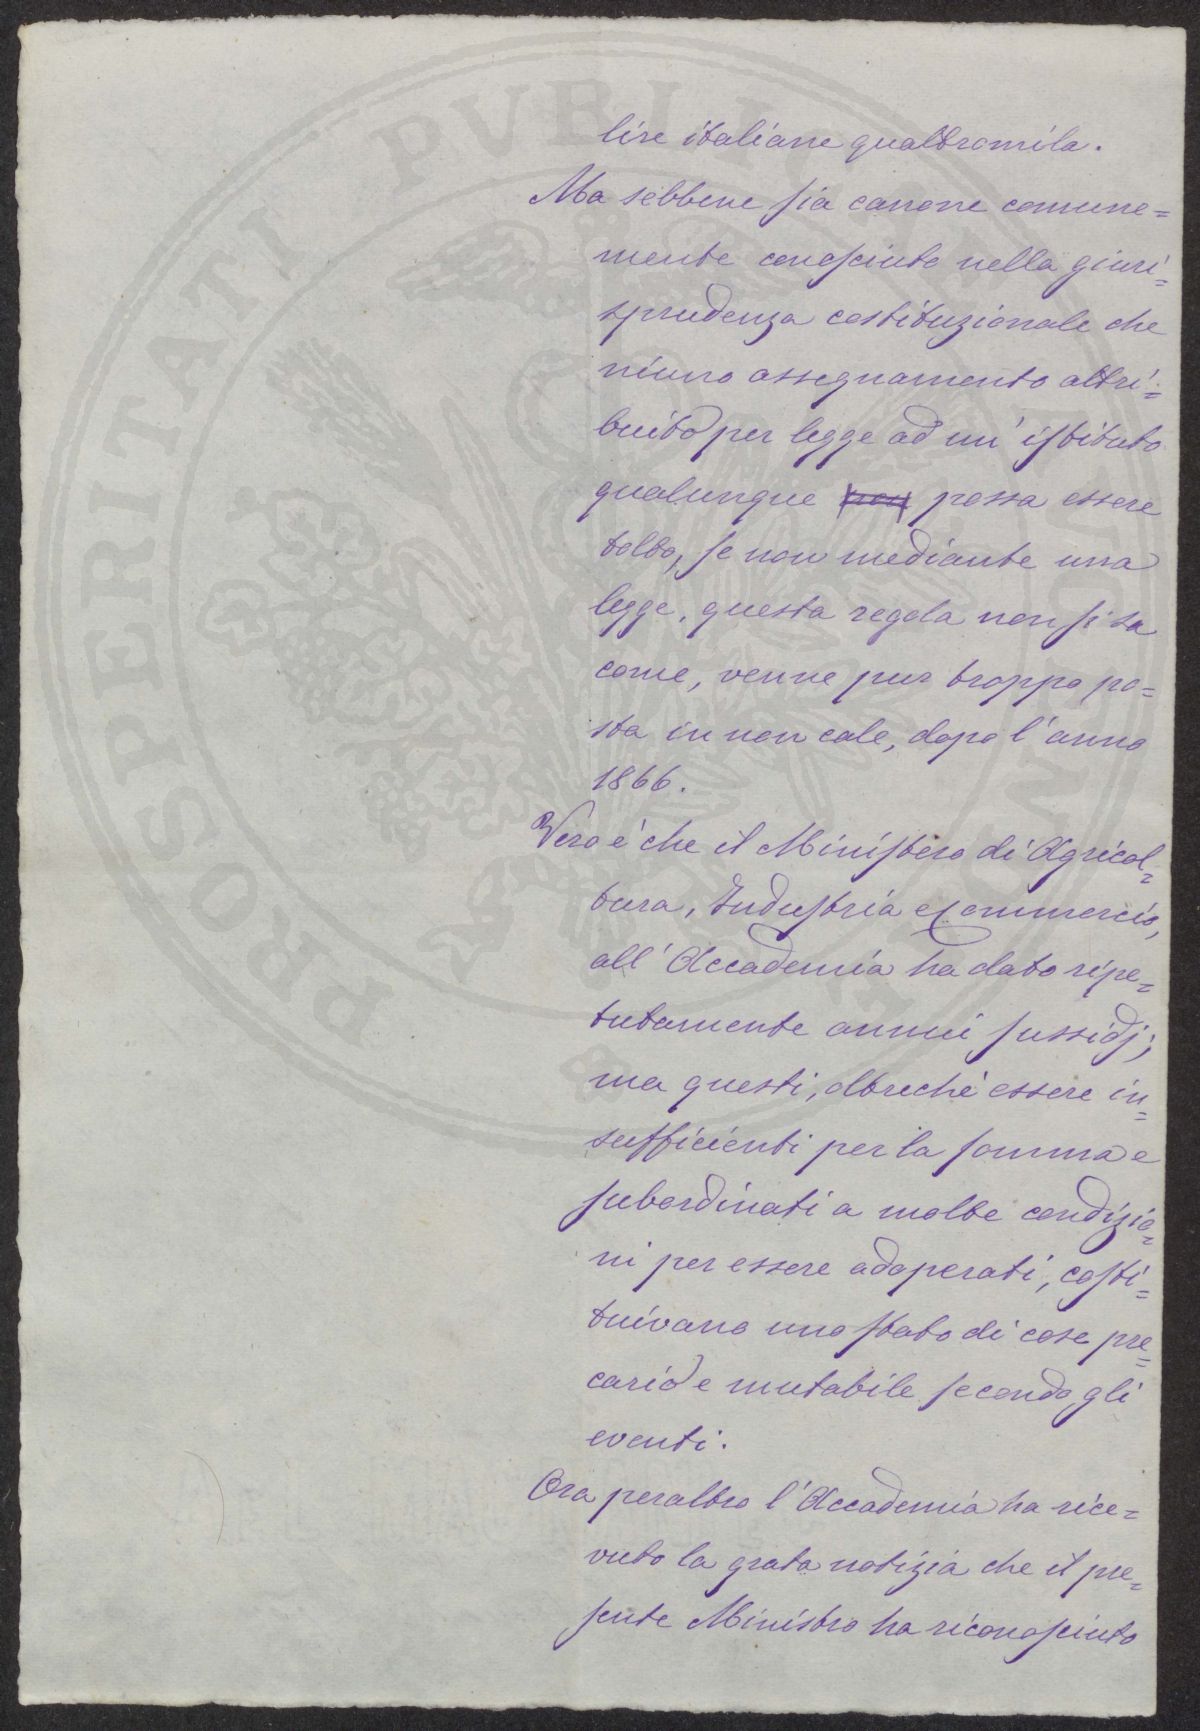 lire italiane quattromila.
Ma sebbene sia canone comune=
mente conosciuto nella giuri=
sprudenza costituzionale che
niuno assegnamento attri=
buito per legge ad un' istituto
qualunque non possa essere
tolto, se non mediante una
legge, questa regola non si sa
come, venne pur troppo po=
sta in non cale, dopo l'anno
1866.
Vero è che il Ministero di Agricol=
tura, Industria e Commercio,
all' Accademia ha dato ripe=
tutamente annui sussidj;
ma questi, oltrechè essere in=
sufficienti per la somma e
subordinati a molte condizio=
ni per essere adoperati, costi=
tuivano uno stato di cose pre=
cario e mutabile secondo gli
eventi.
Ora peraltro l'Accademia ha rice=
vuto la grata notizia che il pre=
sente Ministro ha riconosciuto
PROSPERITATI PVBLICAE